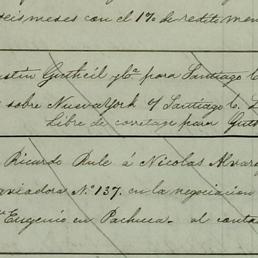 seis meses con el 1% de redito men
ustin Gutheil y Ca para Santiago C.
sobre Nueva York y Santiago C. L
Libre de corretage para Guth
Ricardo Rule á Nicolas Alvare
aviadora No. 137. en la negociacion
Eugenio en Pachuca. al conta